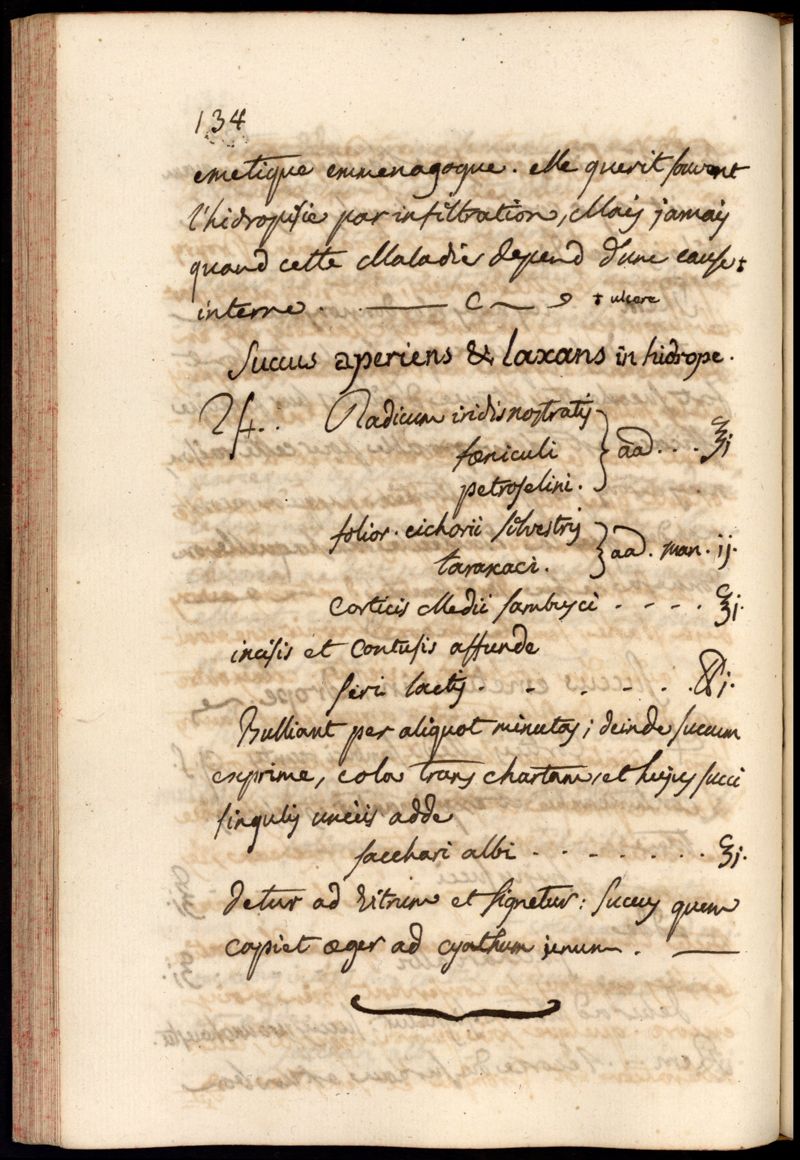 134
emetique emmenagogue. elle querit souvent
l'hidropisie par infiltration, Mais jamais
quand cette Maladie depend d'une cause ‡
interne. ‡ ulcere
Succus aperiens & laxans in hidrope.
℞. Radicum iridis nostratis
fœniculi } aad. . . . ℥j
petroselini.
folior. cichorii silvestris
taraxaci. } aad. man. ij.
Corticis Medii sambuci - - - - ℥j.
incisis et Contusis affunde
seri lactis. - - - - - . ℔j.
Bulliant per aliquot minutas; deinde succum
exprime, cola trans chartam, et hujus succi
singulis unciis adde
sacchari albi - - - - - . . . ʒj.
detur ad vitrum et signetur: succus quem
capiet æger ad cyathum unum.